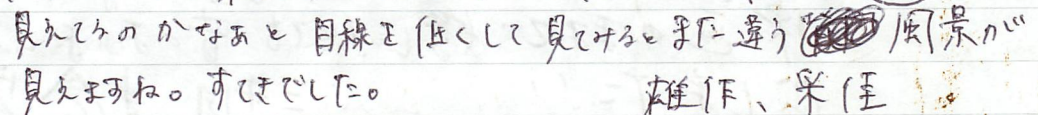 見えてるのかなあと目線を低くして見てみるとまた違う風景が
見えますね。すてきでした。 雄作、采佳